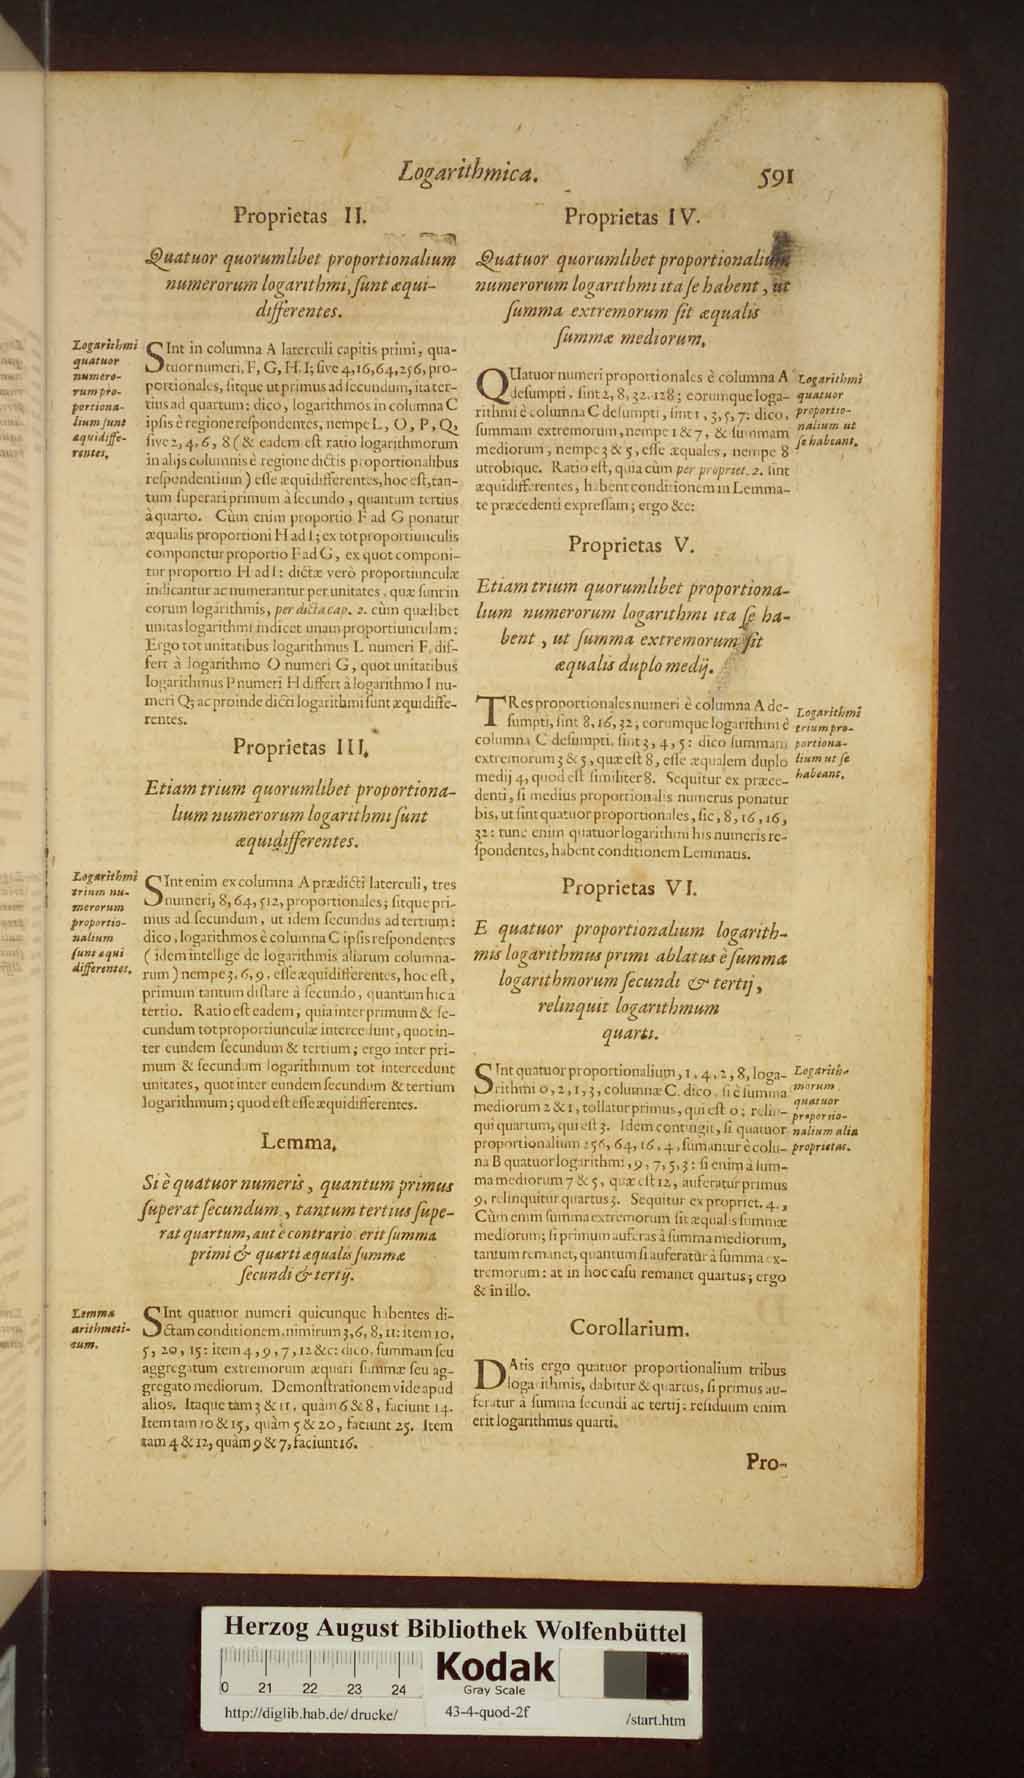 Logarithmica.
591
Proprietas II.
Quatuor quorumlibet proportionalium
numerorum logarithmi, ſunt æqui-
differentes.
Logarithmi
quatuor
numero-
rum pro-
portiona-
lium ſunt
æquidiffe-
rentes.
SInt in columna A laterculi capitis primi, qua-
tuor numeri, F, G, H, I; ſive 4, 16, 64, 256, pro-
portionales, ſitque ut primus ad ſecundum, ita ter-
tius ad quartum: dico, logarithmos in columna C
ipſis è regione reſpondentes, nempe L, O, P, Q,
ſive 2, 4, 6, 8 (& eadem eſt ratio logarithmorum
in alijs columnis è regione dictis proportionalibus
reſpondentium) eſſe æquidifferentes, hoc eſt, tan-
tum ſuperari primum à ſecundo, quantum tertius
à quarto. Cùm enim proportio F ad G ponatur
æqualis proportioni H ad I; ex tot proportiunculis
componetur proportio F ad G, ex quot componi-
tur proportio H ad I: dictæ verò proportiunculæ
indicantur ac numerantur per unitates, quæ ſunt in
eorum logarithmis, per dicta cap. 2. cùm quælibet
unitas logarithmi indicet unam proportiunculam:
Ergo tot unitatibus logarithmus L numeri F, dif-
fert à logarithmo O numeri G, quot unitatibus
logarithmus P numeri H differt à logarithmo I nu-
meri Q; ac proinde dicti logarithmi ſunt æquidiffe-
rentes.
Proprietas III.
Etiam trium quorumlibet proportiona-
lium numerorum logarithmi ſunt
æquidifferentes.
Logarithmi
trium nu-
merorum
proportio-
nalium
ſunt æqui
differentes.
SInt enim ex columna A prædicti laterculi, tres
numeri, 8, 64, 512, proportionales; ſitque pri-
mus ad ſecundum, ut idem ſecundus ad tertium:
dico, logarithmos è columna C ipſis reſpondentes
(idem intellige de logarithmis aliarum columna-
rum) nempe 3, 6, 9, eſſe æquidifferentes, hoc eſt,
primum tantum diſtare à ſecundo, quantum hic a
tertio. Ratio eſt eadem, quia inter primum & ſe-
cundum tot proportiunculæ intercedunt, quot in-
ter eundem ſecundum & tertium; ergo inter pri-
mum & ſecundum logarithmum tot intercedunt
unitates, quot inter eundem ſecundum & tertium
logarithmum; quod eſt eſſe æquidifferentes.
Lemma.
Si è quatuor numeris, quantum primus
ſuperat ſecundum, tantum tertius ſupe-
rat quartum, aut è contrario erit ſumma
primi & quarti æqualis ſummæ
ſecundi & tertij.
Lemma
arithmeti-
cum.
SInt quatuor numeri quicunque habentes di-
ctam conditionem, nimirum 3, 6, 8, 11: item 10,
5, 20, 15: item 4, 9, 7, 12 &c: dico, ſummam ſeu
aggregatum extremorum æquari ſummæ ſeu ag-
gregato mediorum. Demonſtrationem vide apud
alios. Itaque tam 3 & 11, quàm 6 & 8, faciunt 14.
Item tam 10 & 15, quàm 5 & 20, faciunt 25. Item
tam 4 & 12, quàm 9 & 7, faciunt 16.
Proprietas IV.
Quatuor quorumlibet proportionalium
numerorum logarithmi ita ſe habent, ut
ſumma extremorum ſit æqualis
ſummæ mediorum.
QUatuor numeri proportionales è columna A
deſumpti, ſint 2, 8, 32, 128; eorumque loga-
rithmi è columna C deſumpti, ſint 1, 3, 5, 7: dico,
ſummam extremorum, nempe 1 & 7, & ſummam
mediorum, nempe 3 & 5, eſſe æquales, nempe 8
utrobique. Ratio eſt, quia cùm per propriet. 2. ſint
æquidifferentes, habent conditionem in Lemma-
te præcedenti expreſſam; ergo &c:
Logarithmi
quatuor
proportio-
nalium ut
ſe habeant.
Proprietas V.
Etiam trium quorumlibet proportiona-
lium numerorum logarithmi ita ſe ha-
bent, ut ſumma extremorum ſit
æqualis duplo medij.
TRes proportionales numeri è columna A de-
ſumpti, ſint 8, 16, 32; eorumque logarithmi è
columna C deſumpti, ſint 3, 4, 5: dico ſummam
extremorum 3 & 5, quæ eſt 8, eſſe æqualem duplo
medij 4, quod eſt ſimiliter 8. Sequitur ex præce-
denti, ſi medius proportionalis numerus ponatur
bis, ut ſint quatuor proportionales, ſic, 8, 16, 16,
32: tunc enim quatuor logarithmi his numeris re-
ſpondentes, habent conditionem Lemmatis.
Logarithmi
trium pro-
portiona-
lium ut ſe
habeant.
Proprietas VI.
E quatuor proportionalium logarith-
mis logarithmus primi ablatus è ſumma
logarithmorum ſecundi & tertij,
relinquit logarithmum
quarti.
SInt quatuor proportionalium, 1, 4, 2, 8, loga-
rithmi 0, 2, 1, 3, columnæ C. dico, ſi è ſumma
mediorum 2 & 1, tollatur primus, qui eſt 0; relin-
qui quartum, qui eſt 3. Idem contingit, ſi quatuor
proportionalium 256, 64, 16, 4, ſumantur è colu-
na B quatuor logarithmi, 9, 7, 5, 3: ſi enim à ſum-
ma mediorum 7 & 5, quæ eſt 12, auferatur primus
9, relinquitur quartus 3. Sequitur ex propriet. 4.,
Cùm enim ſumma extremorum ſit æqualis ſummæ
mediorum; ſi primum auferas à ſumma mediorum,
tantum remanet, quantum ſi auferatur à ſumma ex-
tremorum: at in hoc caſu remanet quartus; ergo
& in illo.
Logarith-
morum
quatuor
proportio-
nalium alia
proprietas.
Corollarium.
DAtis ergo quatuor proportionalium tribus
logarithmis, dabitur & quartus, ſi primus au-
feratur à ſumma ſecundi ac tertij: reſiduum enim
erit logarithmus quarti.
Pro-
Herzog August Bibliothek Wolfenbüttel
0 21 22 23 24
Kodak
Gray Scale
http://diglib.hab.de/drucke/
43-4-quod-2f
/start.htm